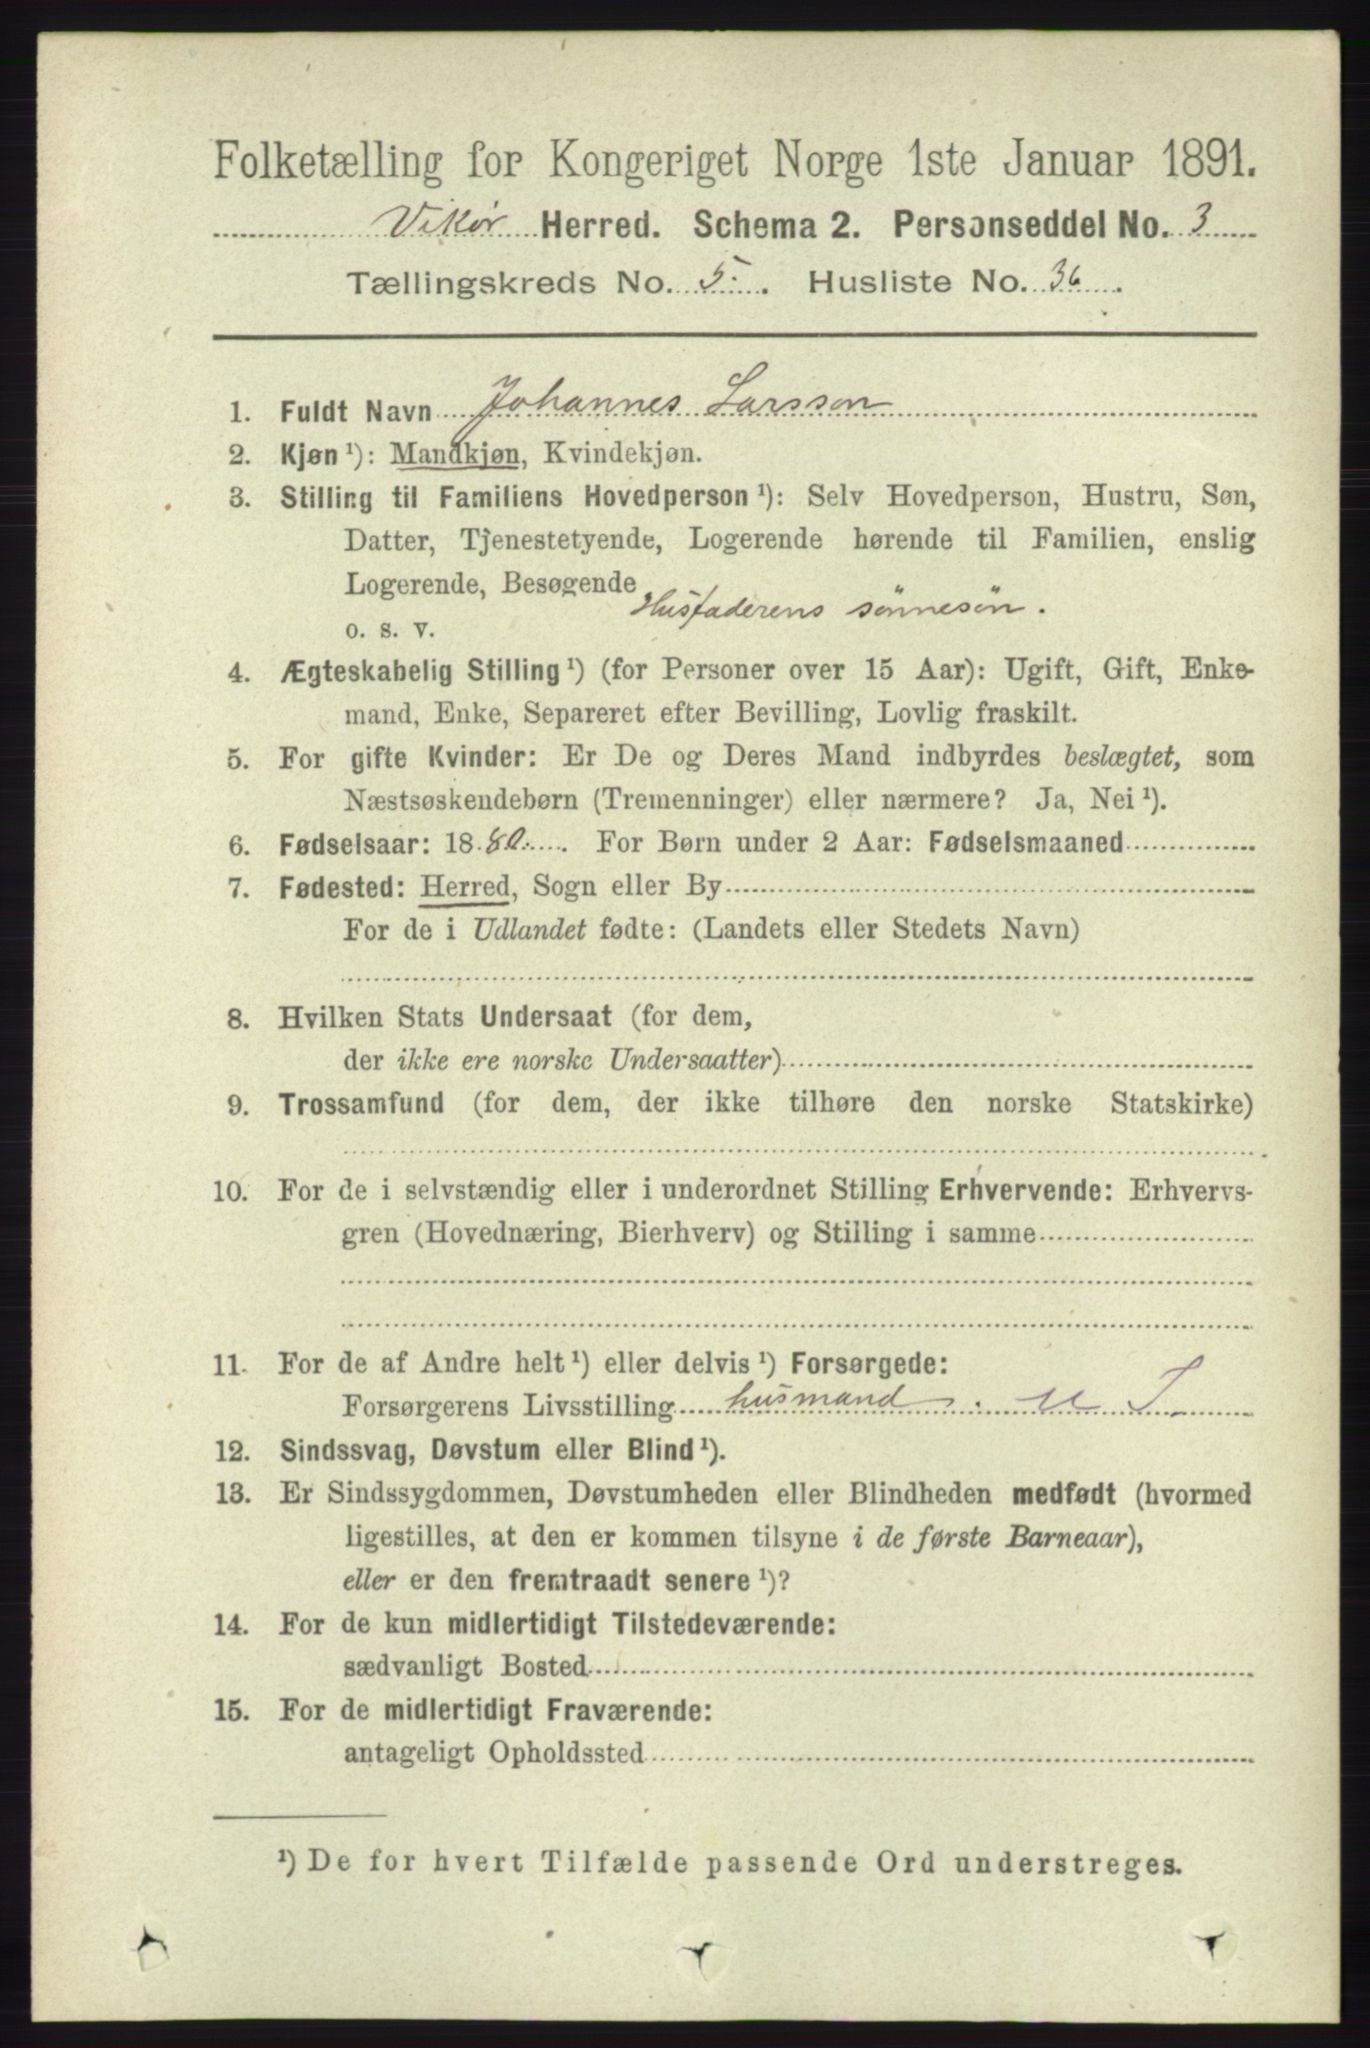 Folketælling for Kongeriget Norge 1ste Januar 1891.
Vikør Herred. Schema 2. Personseddel No. 3
Tællingskreds No. 5. Husliste No. 36.
1. Fuldt Navn Johannes Larsson
2. Kjøn ¹): Mandkjøn, Kvindekjøn.
3. Stilling til Familiens Hovedperson ¹): Selv Hovedperson, Hustru, Søn,
Datter, Tjenestetyende, Logerende hørende til Familien, enslig
Logerende, Besøgende
o. s. v. Husfaderens sönnesön.
4. Ægteskabelig Stilling ¹) (for Personer over 15 Aar): Ugift, Gift, Enke-
mand, Enke, Separeret efter Bevilling, Lovlig fraskilt.
5. For gifte Kvinder: Er De og Deres Mand indbyrdes beslægtet, som
Næstsøskendebørn (Tremenninger) eller nærmere? Ja, Nei ¹).
6. Fødselsaar: 1880. For Børn under 2 Aar: Fødselsmaaned
7. Fødested: Herred, Sogn eller By
For de i Udlandet fødte: (Landets eller Stedets Navn)
8. Hvilken Stats Undersaat (for dem,
der ikke ere norske Undersaatter)
9. Trossamfund (for dem, der ikke tilhøre den norske Statskirke)
10. For de i selvstændig eller i underordnet Stilling Erhvervende: Erhvervs-
gren (Hovednæring, Bierhverv) og Stilling i samme
11. For de af Andre helt ¹) eller delvis ¹) Forsørgede:
Forsørgerens Livsstilling husmand. M J.
12. Sindssvag, Døvstum eller Blind ¹).
13. Er Sindssygdommen, Døvstumheden eller Blindheden medfødt (hvormed
ligestilles, at den er kommen tilsyne i de første Barneaar),
eller er den fremtraadt senere ¹)?
14. For de kun midlertidigt Tilstedeværende:
sædvanligt Bosted
15. For de midlertidigt Fraværende:
antageligt Opholdssted
¹) De for hvert Tilfælde passende Ord understreges.